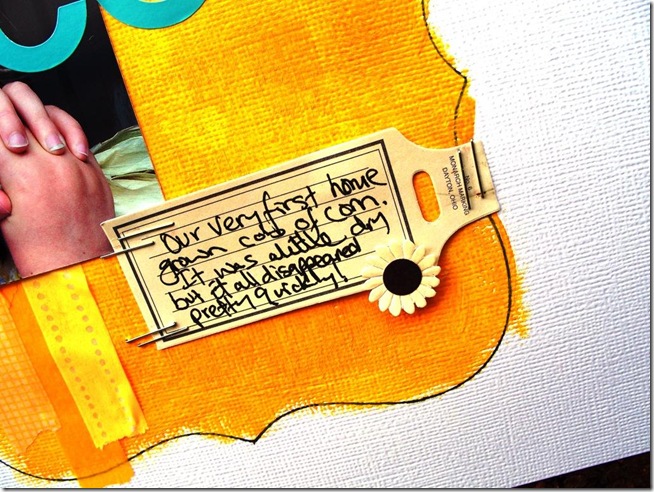 CO
Our very first home
grown cob of corn.
It was a little dry
but it all disappeared
pretty quickly!
No. 6
MONARCH MARKING
DAYTON, OHIO